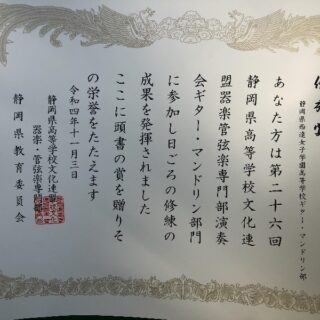 静岡県西遠女子学園高等学校ギター・マンドリン部
あなた方は第二十六回
静岡県高等学校文化連
盟器楽管弦楽専門部演奏
会ギター・マンドリン部門
に参加し日ごろの修練の
成果を発揮されました
ここに頭書の賞を贈りそ
の栄誉をたたえます
令和四年十一月三日
静岡県高等学校文化連盟
器楽・管弦楽専門部
静岡県教育委員会